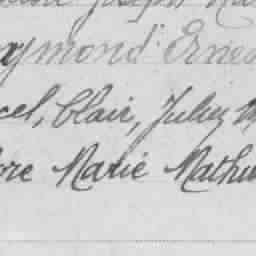 Joseph
aymond Ernes
cel, Clair, Julien M
ore Marie Mathu